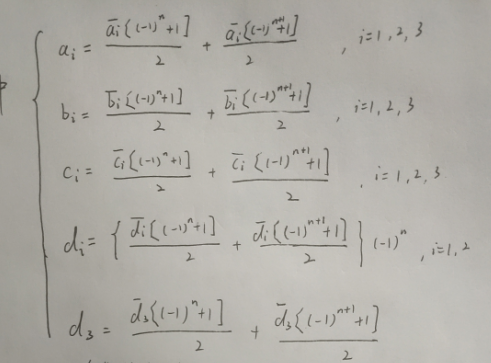 a_i = \frac{\bar{a}_i{(-1)^n+1]}{2} + \frac{\bar{a}_i{(-1)^{n+1}+1]}{2} , i=1,2,3
b_i = \frac{\bar{b}_i{(-1)^n+1]}{2} + \frac{\bar{b}_i{(-1)^{n+1}+1]}{2} , i=1,2,3
c_i = \frac{\bar{c}_i[(-1)^n+1]}{2} + \frac{\bar{c}_i[(-1)^{n+1}+1]}{2} , i=1,2,3
d_i = { \frac{\bar{d}_i[(-1)^n+1]}{2} + \frac{\bar{d}_i[(-1)^{n+1}+1]}{2} } (-1)^n , i=1,2
d_3 = \frac{\bar{d}_3{(-1)^n+1]}{2} + \frac{\bar{d}_3{(-1)^{n+1}+1]}{2}